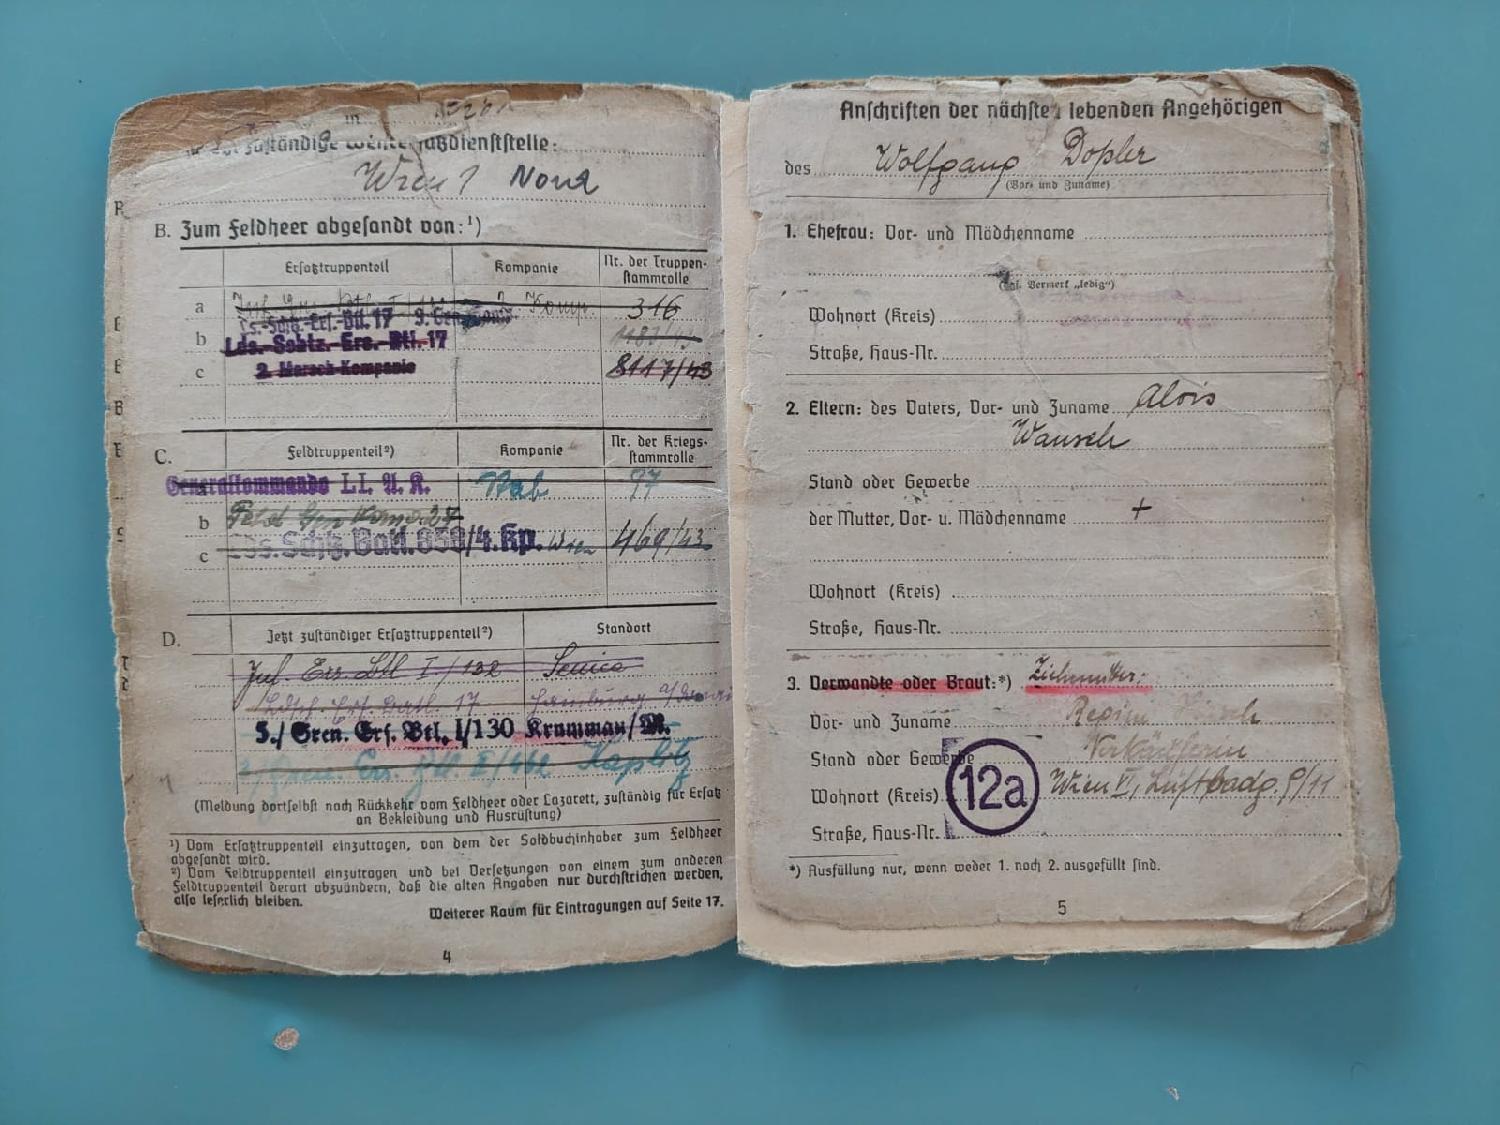 zuständige Wehrersatzdienststelle:
Wien 1 Nord
B. Zum Feldheer abgesandt von:¹)
Ersatztruppenteil Kompanie Nr. der Truppen-
stammrolle
a 2. Komp. 316
Ers.-Btl. 17
b Lds.-Schtz.-Ers.-Btl. 17
c 2. Marsch-Kompanie 8117/43
C. Feldtruppenteil²) Kompanie Nr. der Kriegs-
stammrolle
Generalkommando LI. A. K. Stab 97
b
c Lds. Schtz. Batl. 4. Kp. Wien 469/43
D. Jetzt zuständiger Ersatztruppenteil²) Standort
Inf. Ers. Btl I/132 Senica
Ldsch. Ers. Batl. 17 Hainburg a/Donau
5./Gren. Ers. Btl. I/130 Krummau/M.
Kaplitz
(Meldung dortselbst nach Rückkehr vom Feldheer oder Lazarett, zuständig für Ersatz
an Bekleidung und Ausrüstung)
¹) Vom Ersatztruppenteil einzutragen, von dem der Soldbuchinhaber zum Feldheer
abgesandt wird.
²) Vom Feldtruppenteil einzutragen und bei Versetzungen von einem zum anderen
Feldtruppenteil derart abzuändern, daß die alten Angaben nur durchstrichen werden,
also leserlich bleiben.
Weiterer Raum für Eintragungen auf Seite 17.
4
Anschriften der nächsten lebenden Angehörigen
des Wolfgang Dopler
(Vor- und Zuname)
1. Ehefrau: Vor- und Mädchenname
(ggf. Vermerk „ledig“)
Wohnort (Kreis)
Straße, Haus-Nr.
2. Eltern: des Vaters, Vor- und Zuname Alois
Wansch
Stand oder Gewerbe
der Mutter, Vor- u. Mädchenname +
Wohnort (Kreis)
Straße, Haus-Nr.
3. Verwandte oder Braut:*) Ziehmutter:
Vor- und Zuname
Stand oder Gewerbe Verkäuferin
Wohnort (Kreis) 12a Wien VI, Luftbadg. 9/11
Straße, Haus-Nr.
*) Ausfüllung nur, wenn weder 1. noch 2. ausgefüllt sind.
5